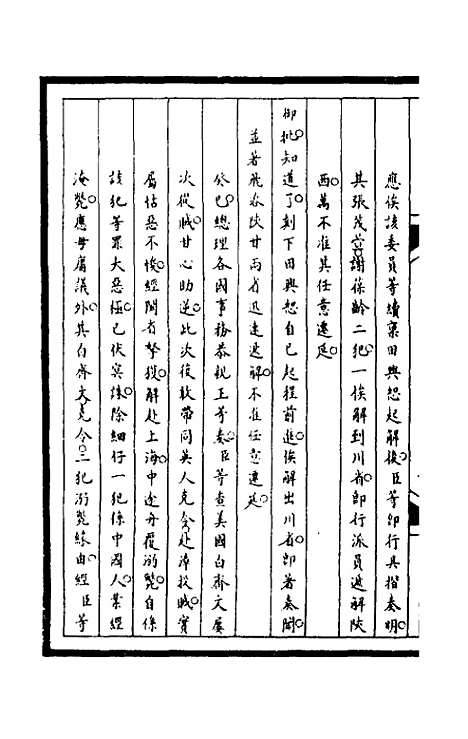 應俟該委員等續稟田興恕起解後臣等即行具摺奏明
其張茂萱謝葆齡二犯一俟解到川省即行派員遞解陝
西萬不准其任意遷延
御批知道了刻下田興恕自己起程前進俟解出川省即著奏聞
並著飛咨陝甘兩省迅速遞解不准任意遷延
癸巳總理各國事務恭親王等奏臣等查美國白齊文屢
次從賊甘心助逆此次復敢帶同英人克令赴漳投賊實
屬怙惡不悛經閩省拏獲解赴上海中途舟覆溺斃自係
該犯等罪大惡極已伏冥誅除細仔一犯係中國人業經
淹斃應毋庸議外其白齊文克令二犯溺斃緣由經臣等